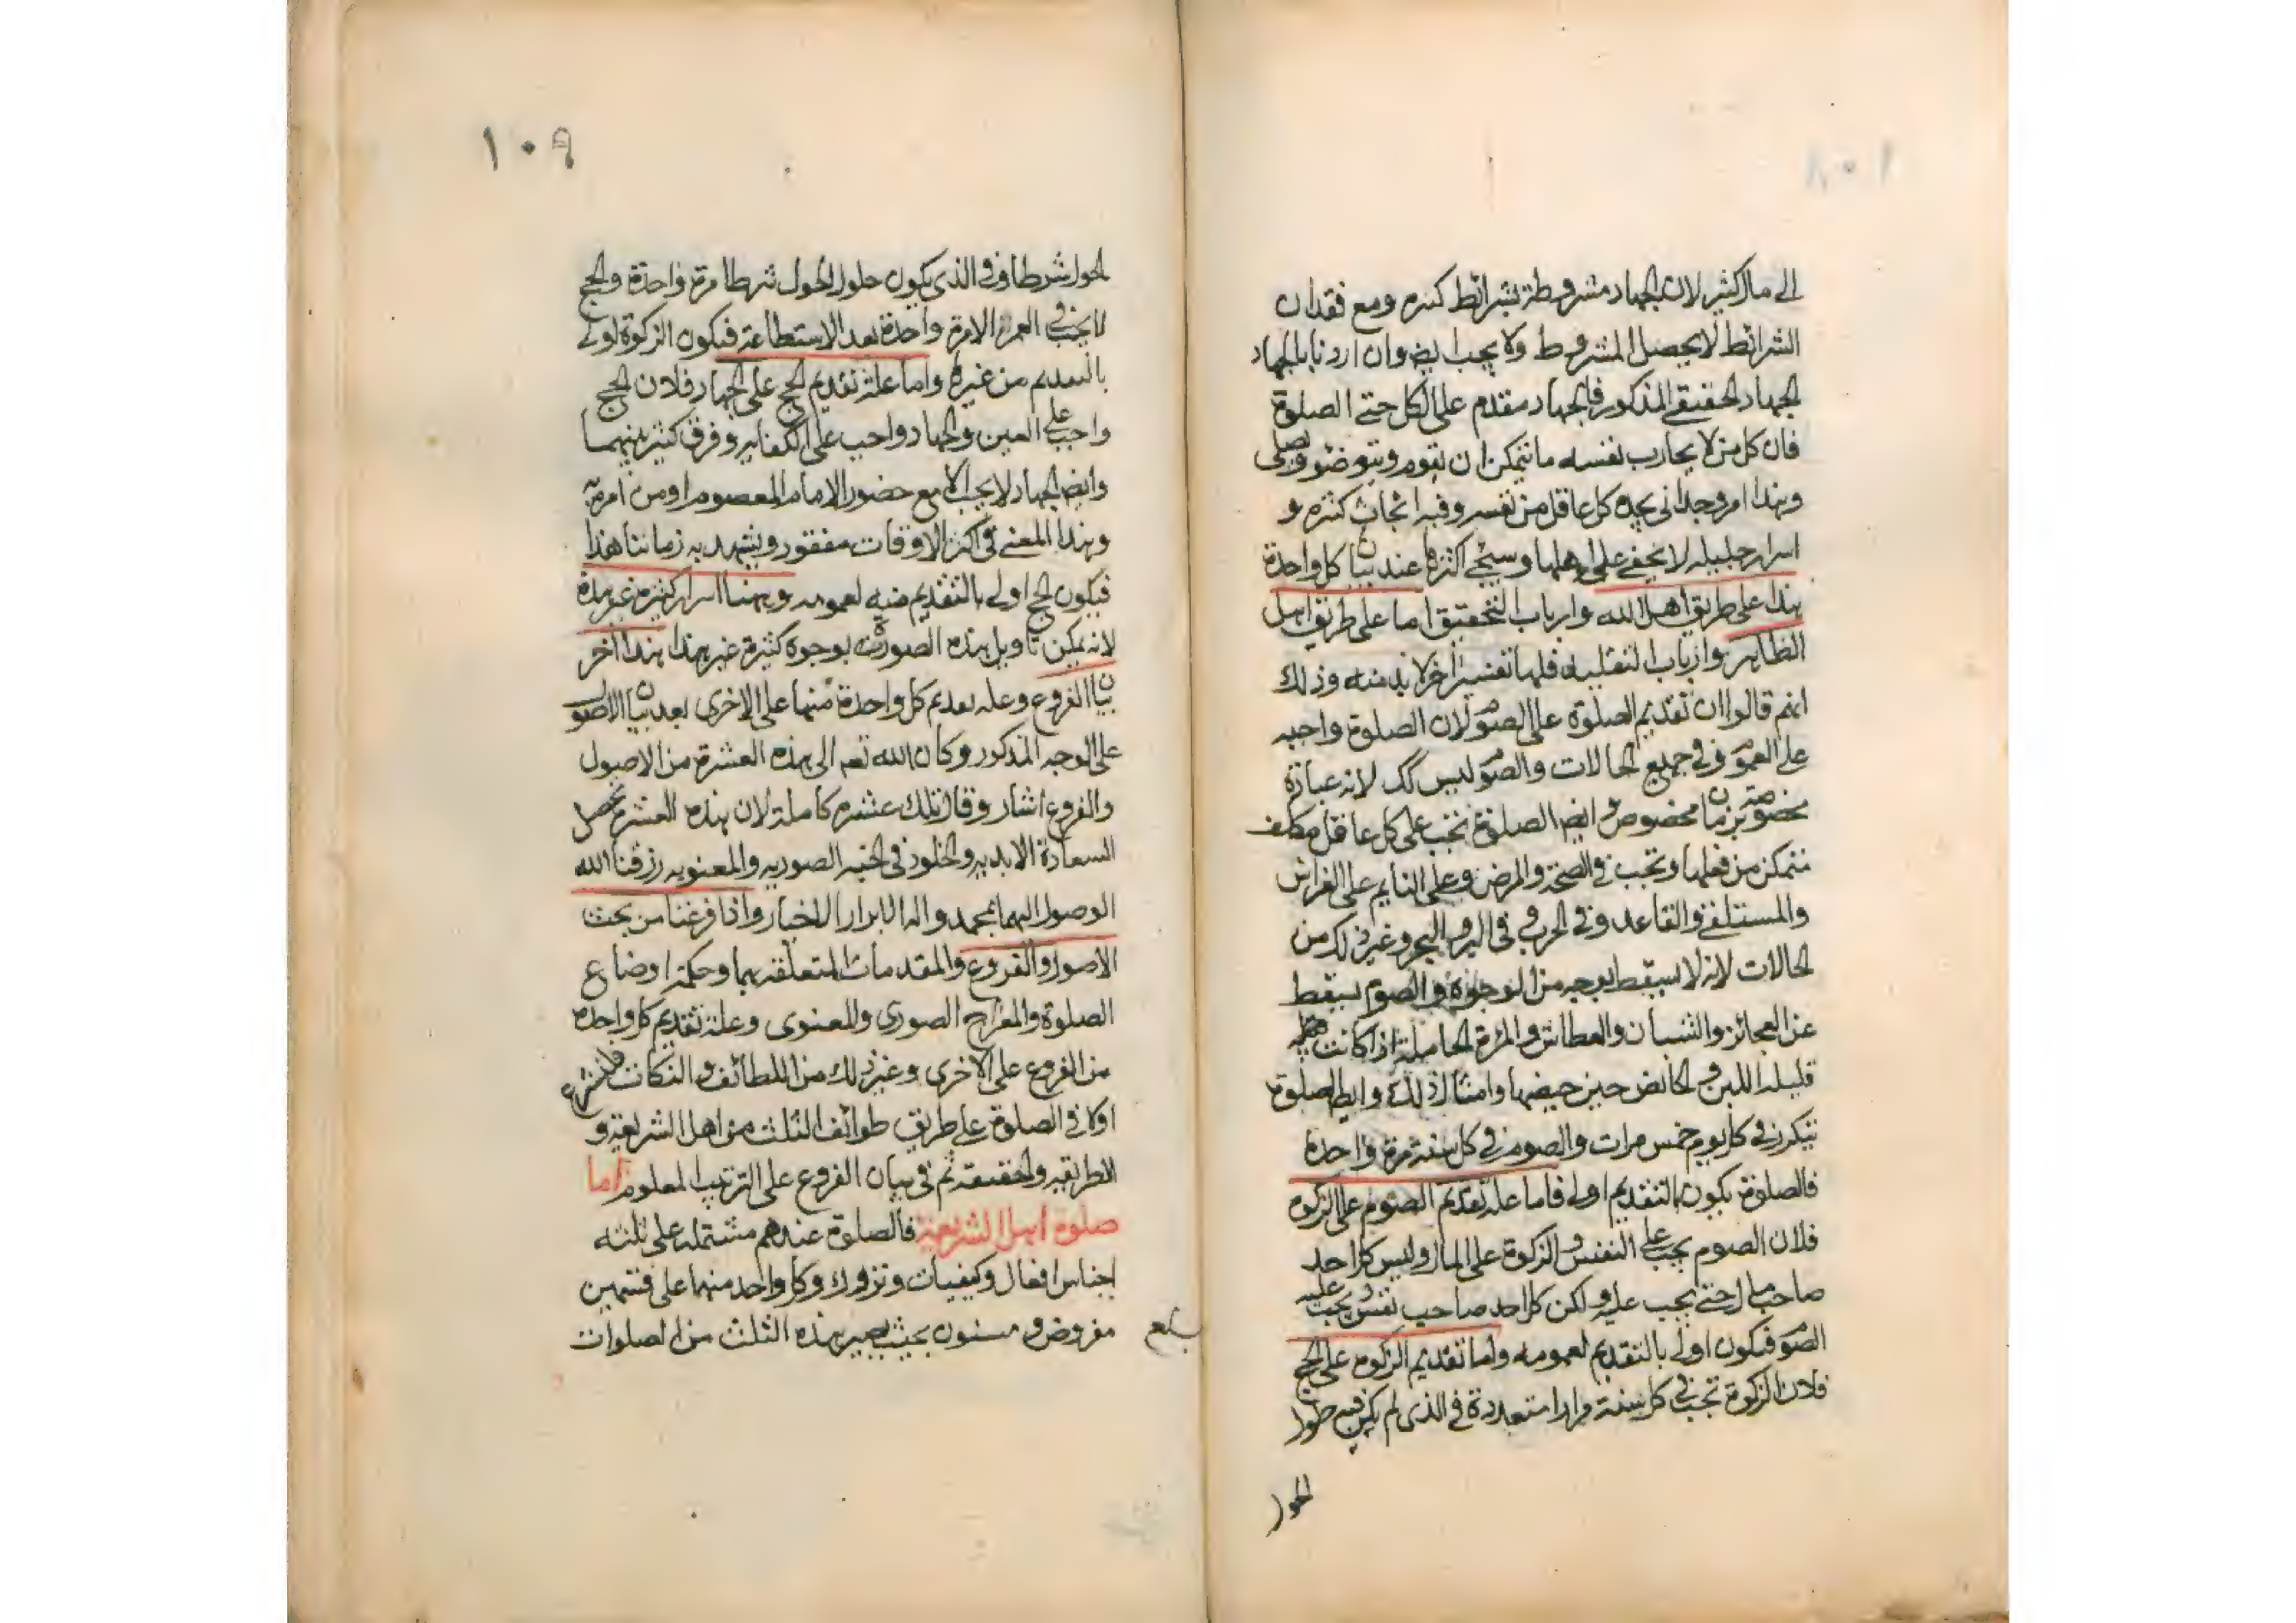 ١٠٨
الى مال كثير لان الجهاد مشروطة بشرائط كثيره ومع فقدان
الشرائط لا يحصل المشروط ولا يجب ايض وان اردنا بالجهاد
الجهاد الحقيقي المذكور فالجهاد مقدم على الكل حتى الصلوة
فان كل من لا يحارب نفسه ما يتمكن ان يقوم ويتوضؤ ويصلي
وهذا امر وجداني يجده كل عاقل من نفسه وفيه ابحاث كثيره و
اسرار جليله لا يخفى على اهلها وسيجئ اكثرها عند بيان كل واحدة
هذا على طريق اهل الله وارباب التحقيق اما على طريق اهل
الظاهر وارباب التقليد فلها تفسير اخر لا بد منه وذلك
انهم قالوا ان تقديم الصلوة على الصوم لان الصلوة واجبه
على العموم وفي جميع الحالات والصوم ليس كك لانه عبادة
مخصوصة بزمان مخصوص وايض الصلوة تجب على كل عاقل مكلف
يتمكن من فعلها وتجب في الصحة والمرض وعلى النايم على الفراش
والمستلقى والقاعد وفي الحرب وفي البر والبحر وغير ذلك من
الحالات لانه لا يسقط بوجه من الوجوه والصوم يسقط
عن العجائز والشبان والعطاش والمرءة الحاملة اذا كانت
قليلة اللبن والحائض حين حيضها وامثال ذلك وايض الصلوة
تتكرر في كل يوم خمس مرات والصوم في كل سنة مرة واحدة
فالصلوة يكون بالتقديم اوله فاما علة تقديم الصوم على الزكوة
فلان الصوم يجب على النفس والزكوة على المال وليس كل احد
صاحب مال حتى يجب عليه ولكن كل احد صاحب نفس يجب عليه
الصوم فيكون اولى بالتقديم لعمومه واما تقديم الزكوة على الحج
فلان الزكوة تجب في كل سنة مرارا متعددة في الذي لم يكن فيه حلول
الحول
١٠٩
الحول شرطا وفي الذي يكون حلول الحول شرطا مرة واحدة والحج
لا يجب في العمر الا مرة واحدة بعد الاستطاعة فيكون الزكوة اولى
بالتقديم من غيرها واما علة تقديم الحج على الجهاد فلان الحج
واجب على العين والجهاد واجب على الكفايه وفرق كثير بينهما
وايض الجهاد لا يجب الا مع حضور الامام المعصوم او من امر به
وهذا المعنى في اكثر الاوقات مفقود ويشهد به زماننا هذا
فيكون الحج اولى بالتقديم منه لعمومه وههنا اسرار كثيرة غير هذه
لانه يمكن تاويل هذه الصورة بوجوه كثيرة غير هذا هذا اخر
بيان الفروع وعلة تقديم كل واحدة منها على الاخرى بعد بيان الاصول
على الوجه المذكور وكان الله تعه الى هذه العشرة من الاصول
والفروع اشار وقال تلك عشرة كاملة لان هذه العشرة تحصل
السعادة الابديه والخلود في الجنه الصوريه والمعنويه رزقنا الله
الوصول اليهما بمحمد واله الابرار الاخيار واذا فرغنا من بحث
الاصول والفروع والمقدمات المتعلقة بهما وحكمة اوضاع
الصلوة والمعراج الصوري والمعنوى وعلة تقديم كل واحدة
من الفروع على الاخرى وغير ذلك من اللطائف والنكات فلنشرع
اولا في الصلوة على طريق طوائف الثلث من اهل الشريعة و
الطريقه والحقيقة ثم في بيان الفروع على الترتيب المعلوم اما
صلوة اهل الشريعة فالصلوة عندهم مشتمله على ثلثه
اجناس افعال وكيفيات وتروك وكل واحد منها على قسمين
مفروض ومسنون بحيث يصير هذه الثلث من الصلوات